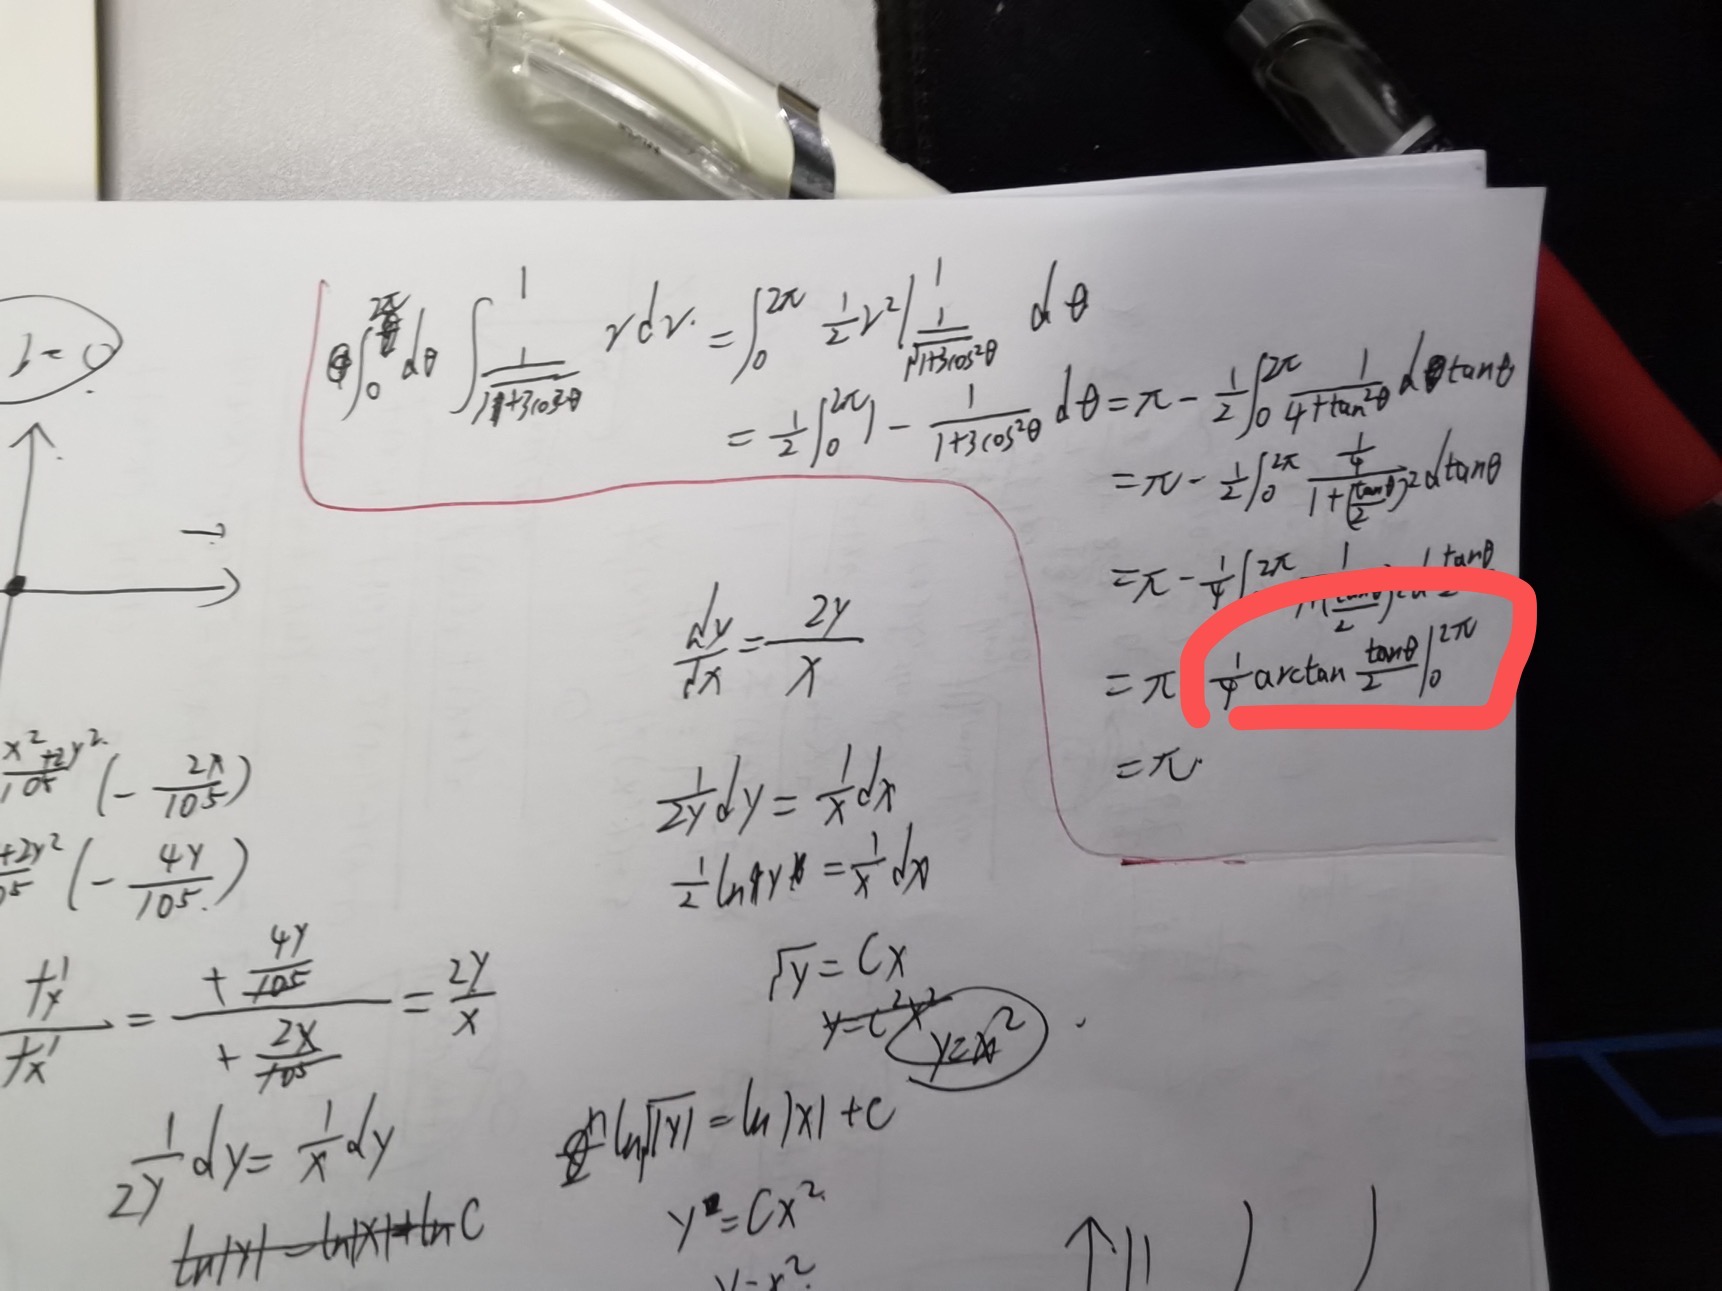 ∫₀^{2π} dθ ∫_{1/√(1+3cos²θ)}^{1} r dr = ∫₀^{2π} ½r² |_{1/√(1+3cos²θ)}^{1} dθ
= ½∫₀^{2π} 1 - 1/(1+3cos²θ) dθ = π - ½∫₀^{2π} 1/(4+tan²θ) dtanθ
= π - ½∫₀^{2π} (1/4)/(1+(tanθ/2)²) dtanθ
= π - ¼∫^{2π} 1/(1+(tanθ/2)²) d tanθ/2
= π ¼ arctan tanθ/2 |₀^{2π}
= π.
dy/dx = 2y/x
1/(2y) dy = 1/x dx
½ ln y = 1/x dx
√y = Cx
y=C²x²
y=x²
ln√|y| = ln|x| + C
y = Cx²
y=x²
(- 2x/105)
+2y² (- 4y/105.)
= (+ 4y/105)/(+ 2x/105) = 2y/x
1/(2y) dy = 1/x dy
ln|y| = ln|x| + ln C